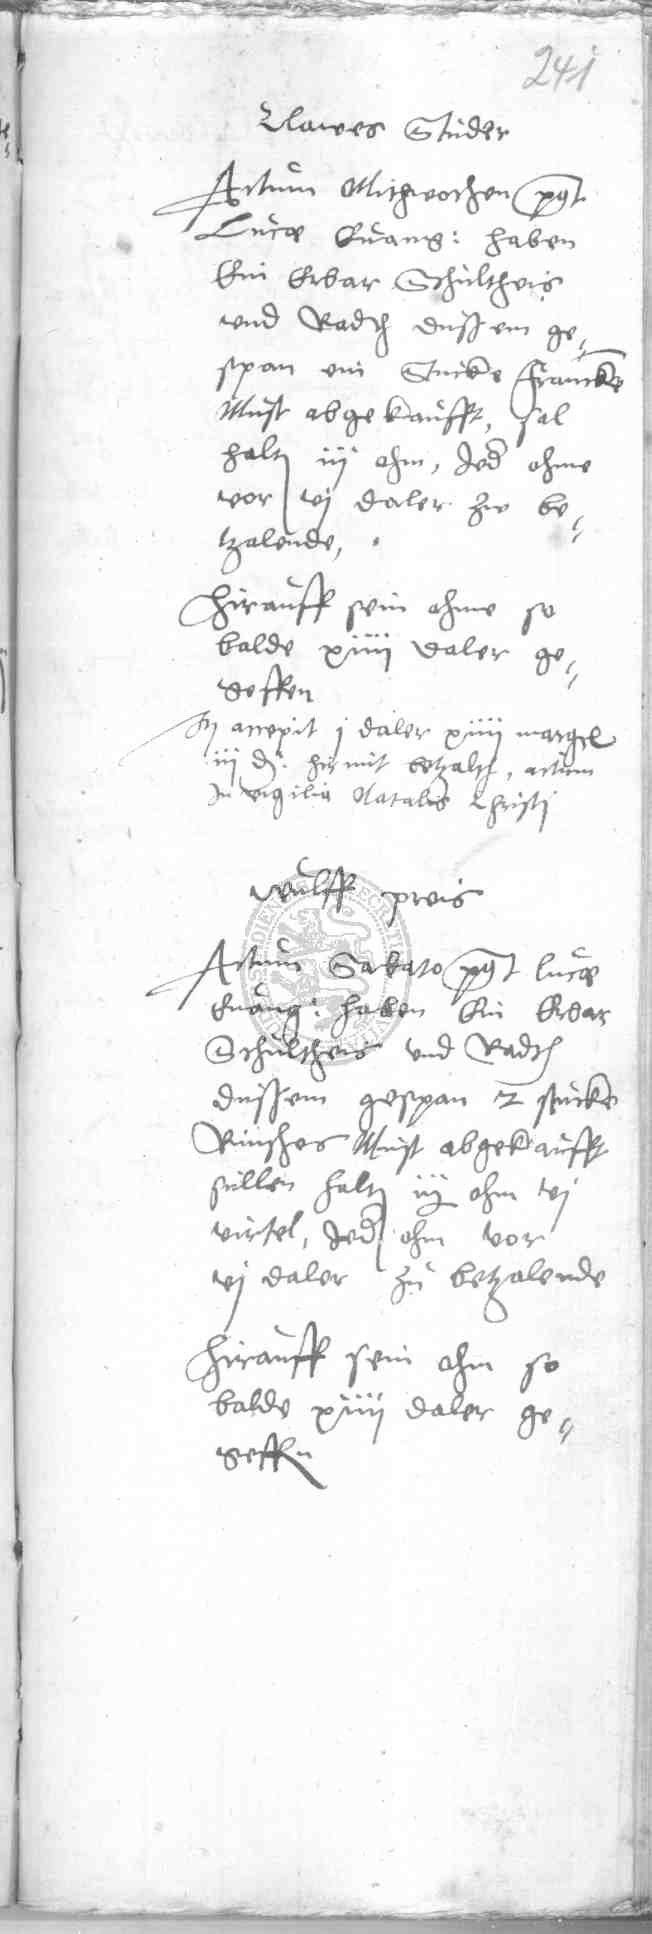 241
Clawes Studer
Actum Mithwochen post
Luce Euang: haben
Ein Erbar Schultheis
vnd Radth dussem ge-
span ein Stucke Francks
Must abgekaufft, sal
halt iij ohm, Jed ohme
vor vj daler zw be-
tzalende,
Hirauff sein ohme so
balde xiiij daler ge-
geffen
accepit j daler xiiij
iij d: hirmit betzalt, actum
In vigilia Natalis Christi
Wulff preis
Actum Sabato post Luce
Euang: haben Ein Erbar
Schultheis vnd Radth
dussem gespan 2 stucke
Rinshes Must abgekaufft
sullen halt iij ohm vj
virtel, Jed ohm vor
vj daler zu betzalende
Hirauff sein ohm so
balde xiiij daler ge-
geffn